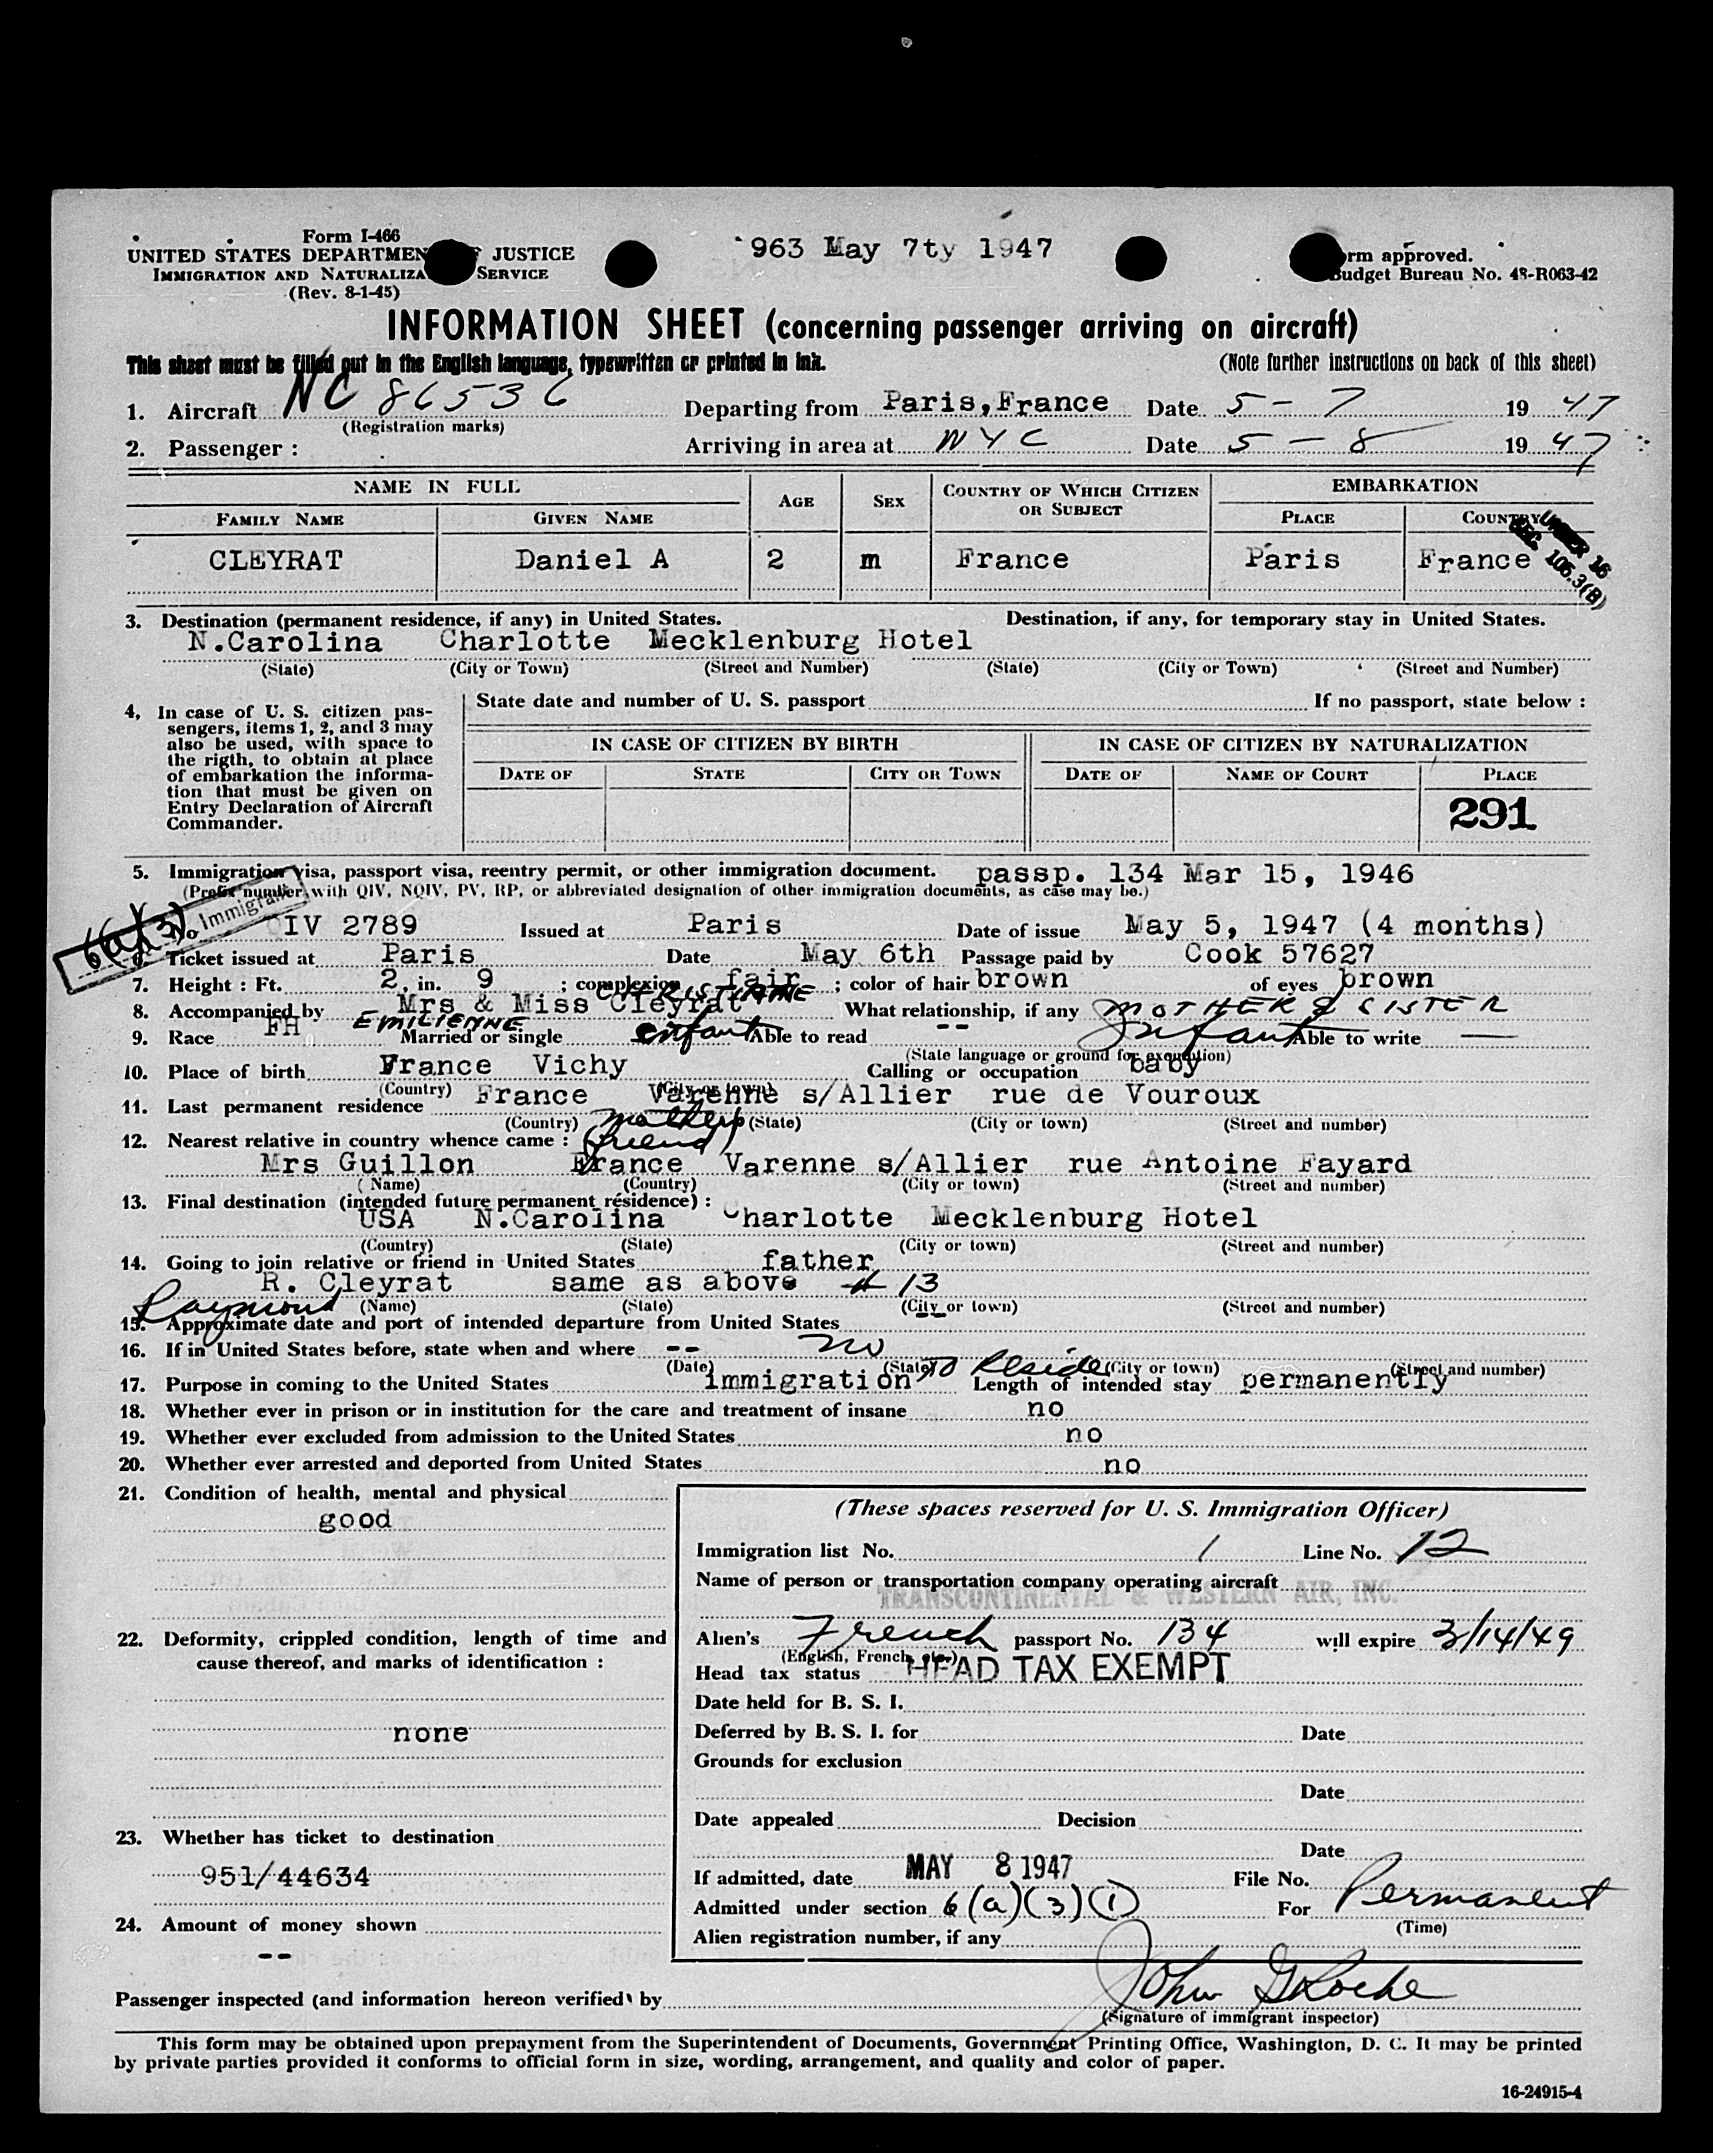 Form I-466
UNITED STATES DEPARTMEN JUSTICE
IMMIGRATION AND NATURALIZA SERVICE
(Rev. 8-1-45)
963 May 7ty 1947
rm approved.
Budget Bureau No. 43-R063-42
INFORMATION SHEET (concerning passenger arriving on aircraft)
This sheet must be filled out in the English language, typewritten or printed in ink.
(Note further instructions on back of this sheet)
1. Aircraft NC 86536 Departing from Paris,France Date 5-7 1947
(Registration marks)
2. Passenger : Arriving in area at NYC Date 5-8 1947
NAME IN FULL AGE SEX COUNTRY OF WHICH CITIZEN OR SUBJECT EMBARKATION
FAMILY NAME GIVEN NAME PLACE COUNTRY
UNDER 16
SEC. 105.3(B)
CLEYRAT Daniel A 2 m France Paris France
3. Destination (permanent residence, if any) in United States. Destination, if any, for temporary stay in United States.
N.Carolina Charlotte Mecklenburg Hotel
(State) (City or Town) (Street and Number) (State) (City or Town) (Street and Number)
4, In case of U. S. citizen pas-
sengers, items 1, 2, and 3 may
also be used, with space to
the rigth, to obtain at place
of embarkation the informa-
tion that must be given on
Entry Declaration of Aircraft
Commander.
State date and number of U. S. passport If no passport, state below :
IN CASE OF CITIZEN BY BIRTH IN CASE OF CITIZEN BY NATURALIZATION
DATE OF STATE CITY OR TOWN DATE OF NAME OF COURT PLACE
291
5. Immigration visa, passport visa, reentry permit, or other immigration document. passp. 134 Mar 15, 1946
(Prefix number with QIV, NQIV, PV, RP, or abbreviated designation of other immigration documents, as case may be.)
Immigration
6(a)(3)
No QIV 2789 Issued at Paris Date of issue May 5, 1947 (4 months)
6. Ticket issued at Paris Date May 6th Passage paid by Cook 57627
7. Height : Ft. 2, in. 9 ; complexion fair ; color of hair brown of eyes brown
CHRISTIANE
8. Accompanied by Mrs & Miss Cleyrat What relationship, if any MOTHER & SISTER
EMILIENNE
9. Race FH Married or single infant Able to read -- Infant Able to write —
(State language or ground for exemption)
10. Place of birth France Vichy Calling or occupation baby
(Country) (City or town)
11. Last permanent residence France Varenne s/Allier rue de Vouroux
(Country) (State) (City or town) (Street and number)
12. Nearest relative in country whence came : mother's (friend)
Mrs Guillon France Varenne s/Allier rue Antoine Fayard
(Name) (Country) (City or town) (Street and number)
13. Final destination (intended future permanent résidence) :
USA N.Carolina Charlotte Mecklenburg Hotel
(Country) (State) (City or town) (Street and number)
14. Going to join relative or friend in United States father
R. Cleyrat same as above # 13
Raymond (Name) (State) (City or town) (Street and number)
15. Approximate date and port of intended departure from United States --
16. If in United States before, state when and where -- no
(Date) (State) (City or town) (Street and number)
17. Purpose in coming to the United States immigration To Reside Length of intended stay permanently
18. Whether ever in prison or in institution for the care and treatment of insane no
19. Whether ever excluded from admission to the United States no
20. Whether ever arrested and deported from United States no
21. Condition of health, mental and physical
good
22. Deformity, crippled condition, length of time and
cause thereof, and marks of identification :
none
23. Whether has ticket to destination
951/44634
24. Amount of money shown
--
(These spaces reserved for U. S. Immigration Officer)
Immigration list No. 1 Line No. 12
Name of person or transportation company operating aircraft
TRANSCONTINENTAL & WESTERN AIR, INC.
Alien's French passport No. 134 will expire 3/14/49
(English, French, etc.)
Head tax status HEAD TAX EXEMPT
Date held for B. S. I.
Deferred by B. S. I. for Date
Grounds for exclusion
Date
Date appealed Decision
Date
If admitted, date MAY 8 1947 File No.
Admitted under section 6(a)(3)(1) For Permanent
(Time)
Alien registration number, if any
Passenger inspected (and information hereon verified) by John G Roche
(Signature of immigrant inspector)
This form may be obtained upon prepayment from the Superintendent of Documents, Government Printing Office, Washington, D. C. It may be printed
by private parties provided it conforms to official form in size, wording, arrangement, and quality and color of paper.
16-24915-4